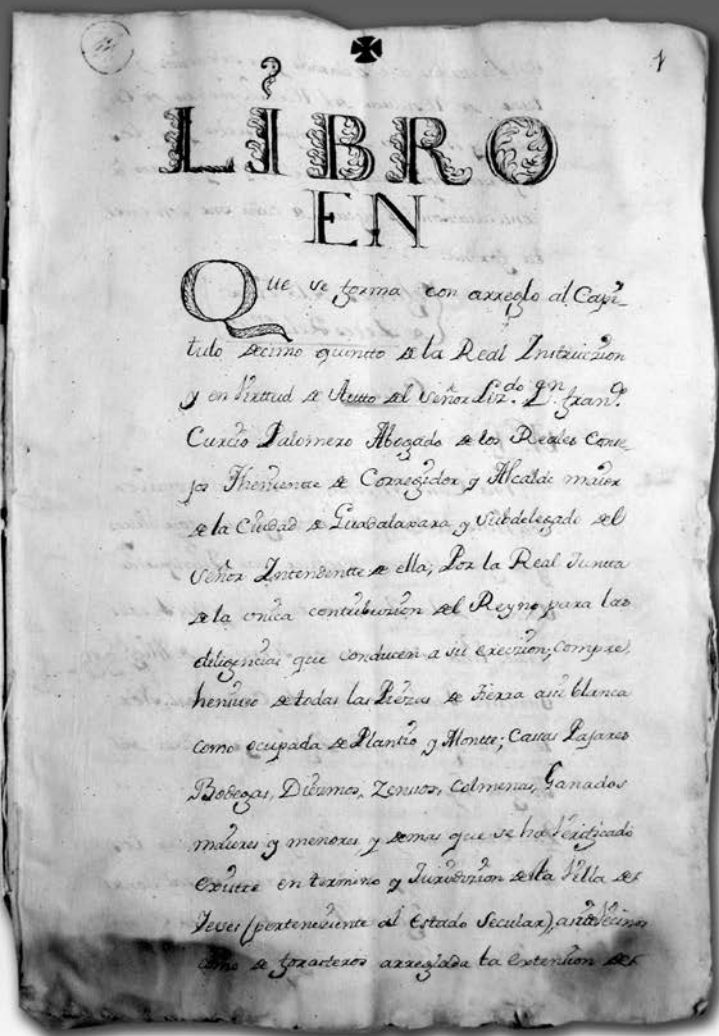 1
LIBRO
EN
Que se forma con arreglo al Capi-
tulo decimo quinto de la Real Instruczion
y en Virttud de Autto del Señor Lizdo. Dn. Franco.
Curcio Palomero Abogado de los Reales Conse-
jos Theniente de Corregidor y Alcalde maior
de la Ciudad de Guadalaxara y Subdelegado del
Señor Intendentte de ella; Por la Real Juntta
de la vnica contribuzion del Reyno, para las
diligencias que conducen a su execuzion; Compre,
hensivo de todas las Piezas de Tierra asi blanca
como ocupada de Planttio y Montte; Cassas Pajares
Bodegas, Diezmos, Zensos, Colmenas, Ganados
maiores y menores, y demas que se ha Verificado
existte en termino y Jurisdizion de la Villa de
Yeves (perteneziente al Estado Secular), asi de Vecinos
como de forasteros arreglada la extension de